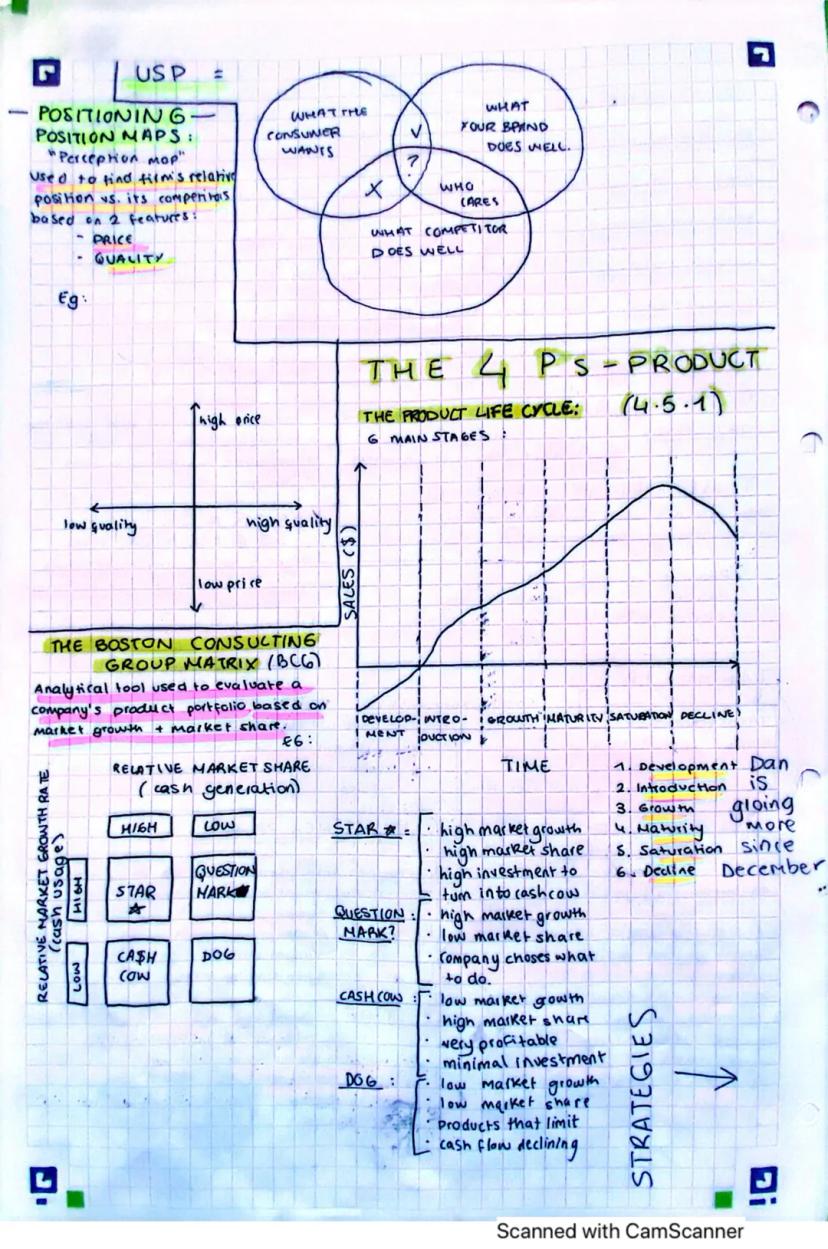 USP =
WHAT THE
CONSUMER
WANTS
WHAT
YOUR BRAND
DOES WELL.
V
?
X
WHO
CARES
WHAT COMPETITOR
DOES WELL
POSITIONING —
POSITION MAPS:
"Perception map"
used to find firm's relative
position vs. its competitors
based on 2 features:
- PRICE
- QUALITY
Eg:
high price
low quality
high quality
low price
THE 4 P's - PRODUCT
THE PRODUCT LIFE CYCLE: (4.5.1)
6 MAIN STAGES :
SALES ($)
DEVELOP-
MENT
INTRO-
DUCTION
GROWTH
MATURITY
SATURATION
DECLINE
TIME
1. Development Dan
2. Introduction is
3. Growth gloing
4. Maturity more
5. Saturation since
6. Decline December
THE BOSTON CONSULTING
GROUP MATRIX (BCG)
Analytical tool used to evaluate a
company's product portfolio based on
market growth + market share.
EG:
RELATIVE MARKET SHARE
(cash generation)
RELATIVE MARKET GROWTH RATE
(cash usage)
HIGH
LOW
HIGH
STAR
QUESTION
MARK
LOW
CA$H
COW
DOG
STAR = · high market growth
· high market share
· high investment to
turn into cashcow
QUESTION
MARK? : · high market growth
· low market share
· company choses what
to do.
CASH COW : · low market growth
· high market share
· very profitable
· minimal investment
DOG : · low market growth
· low market share
· products that limit
· cash flow declining
STRATEGIES →
Scanned with CamScanner